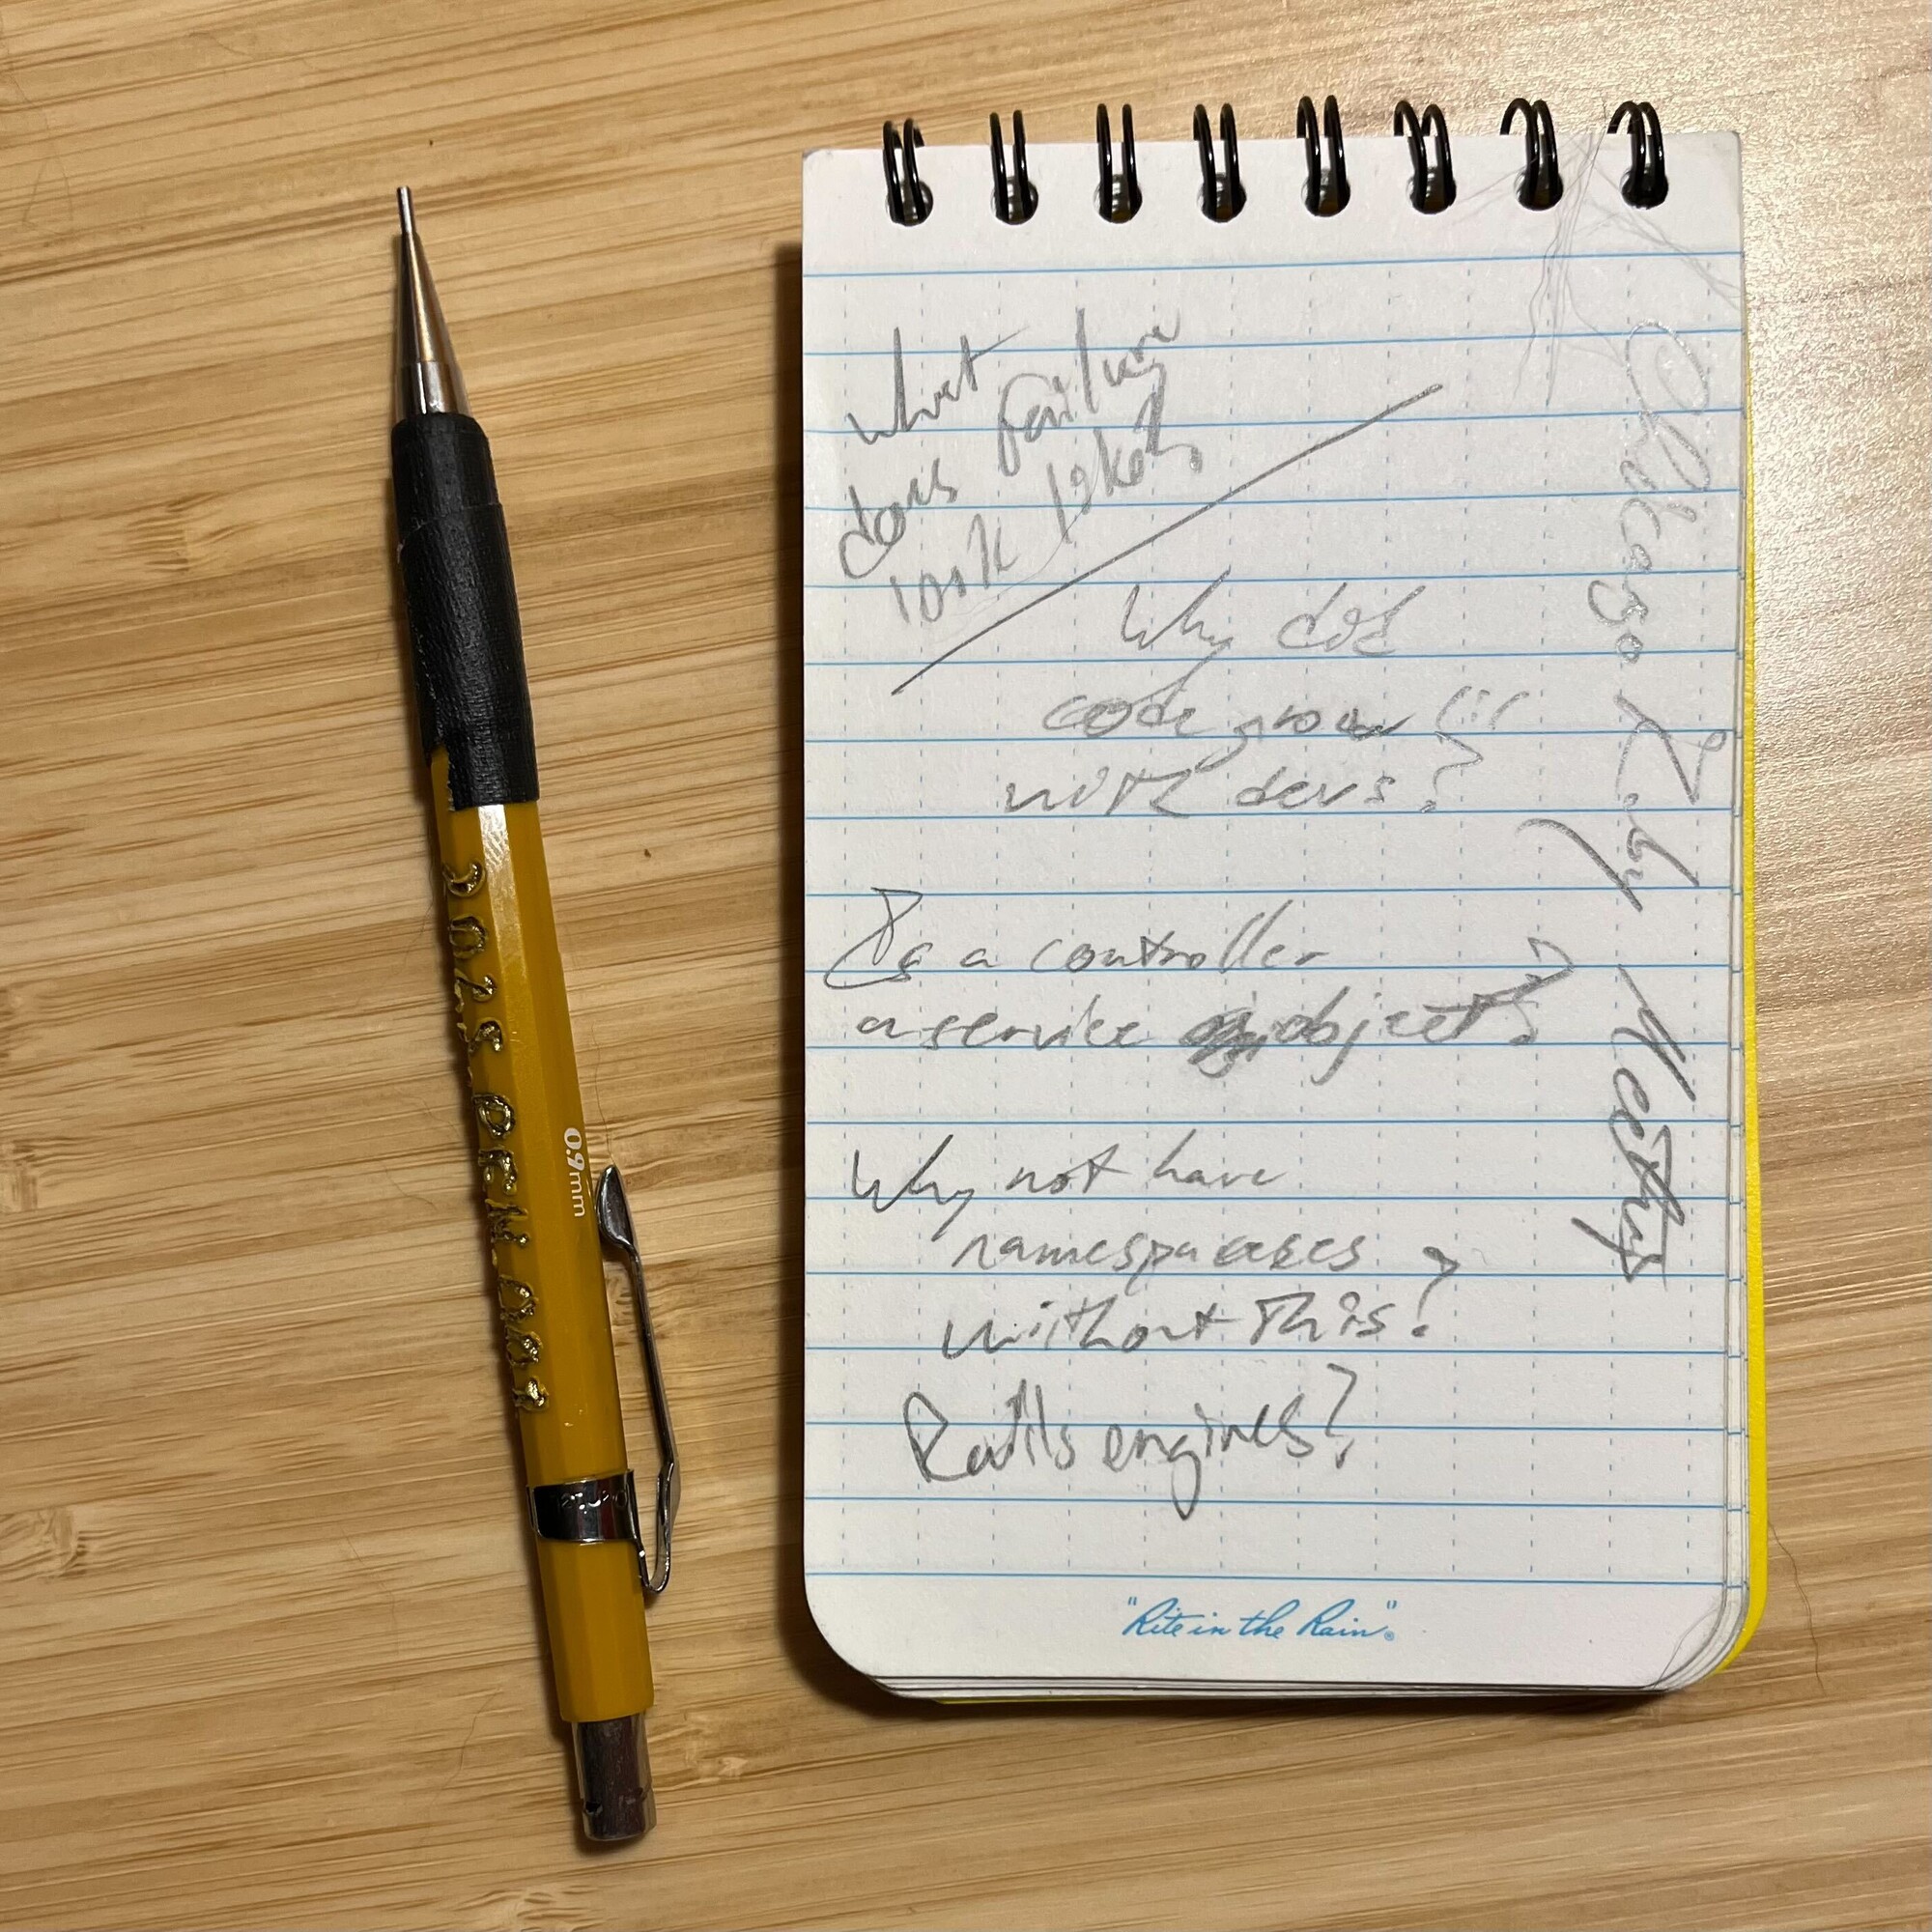 What
does failure
look like?
Why did
code grow !!!
with devs?
Is a controller
a service object?
Why not have
namespaces
without this?
Rails engines?
Chicago Ruby Meeting
"Rite in the Rain"®
0.9mm